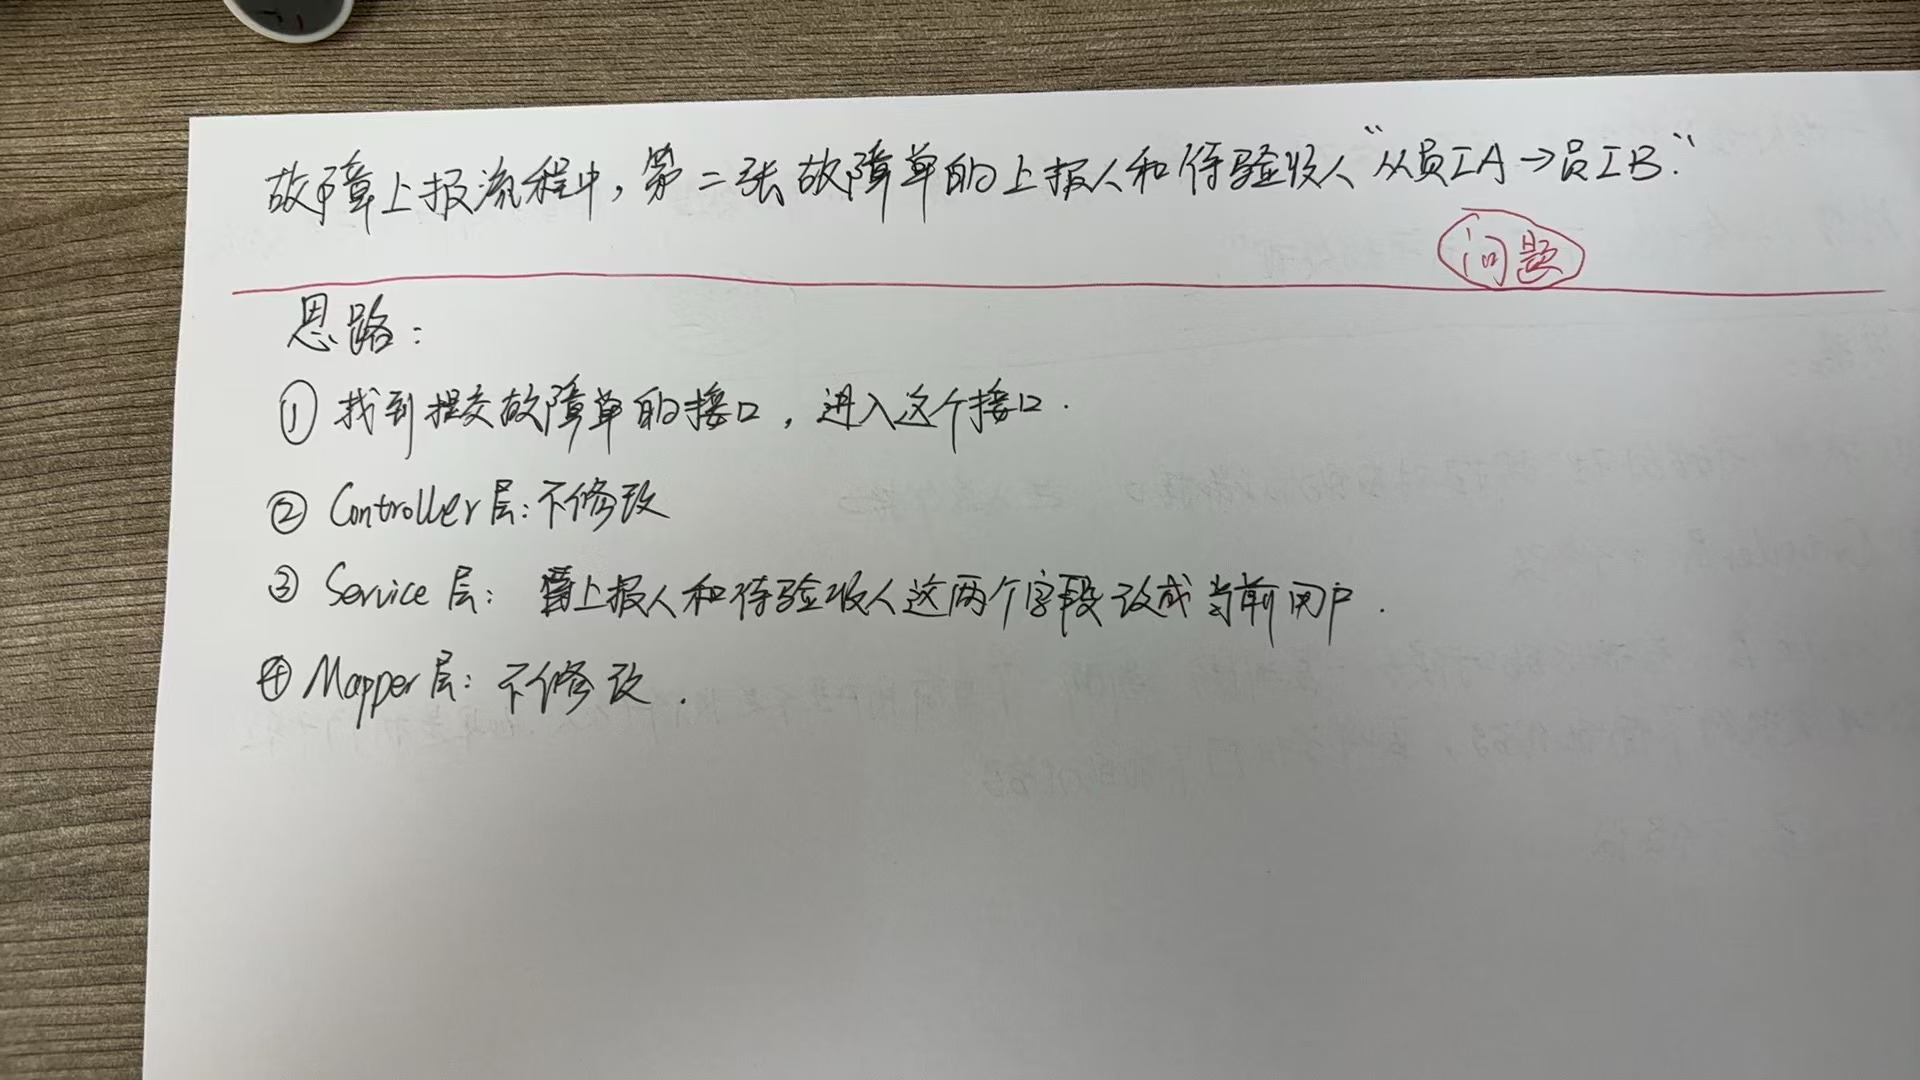 故障上报流程中，第二张故障单的上报人和待验收人“从员工A→员工B.”
问题
思路：
① 找到提交故障单的接口，进入这个接口.
② Controller层：不修改
③ Service层：上报人和待验收人这两个字段改成当前用户.
④ Mapper层：不修改.